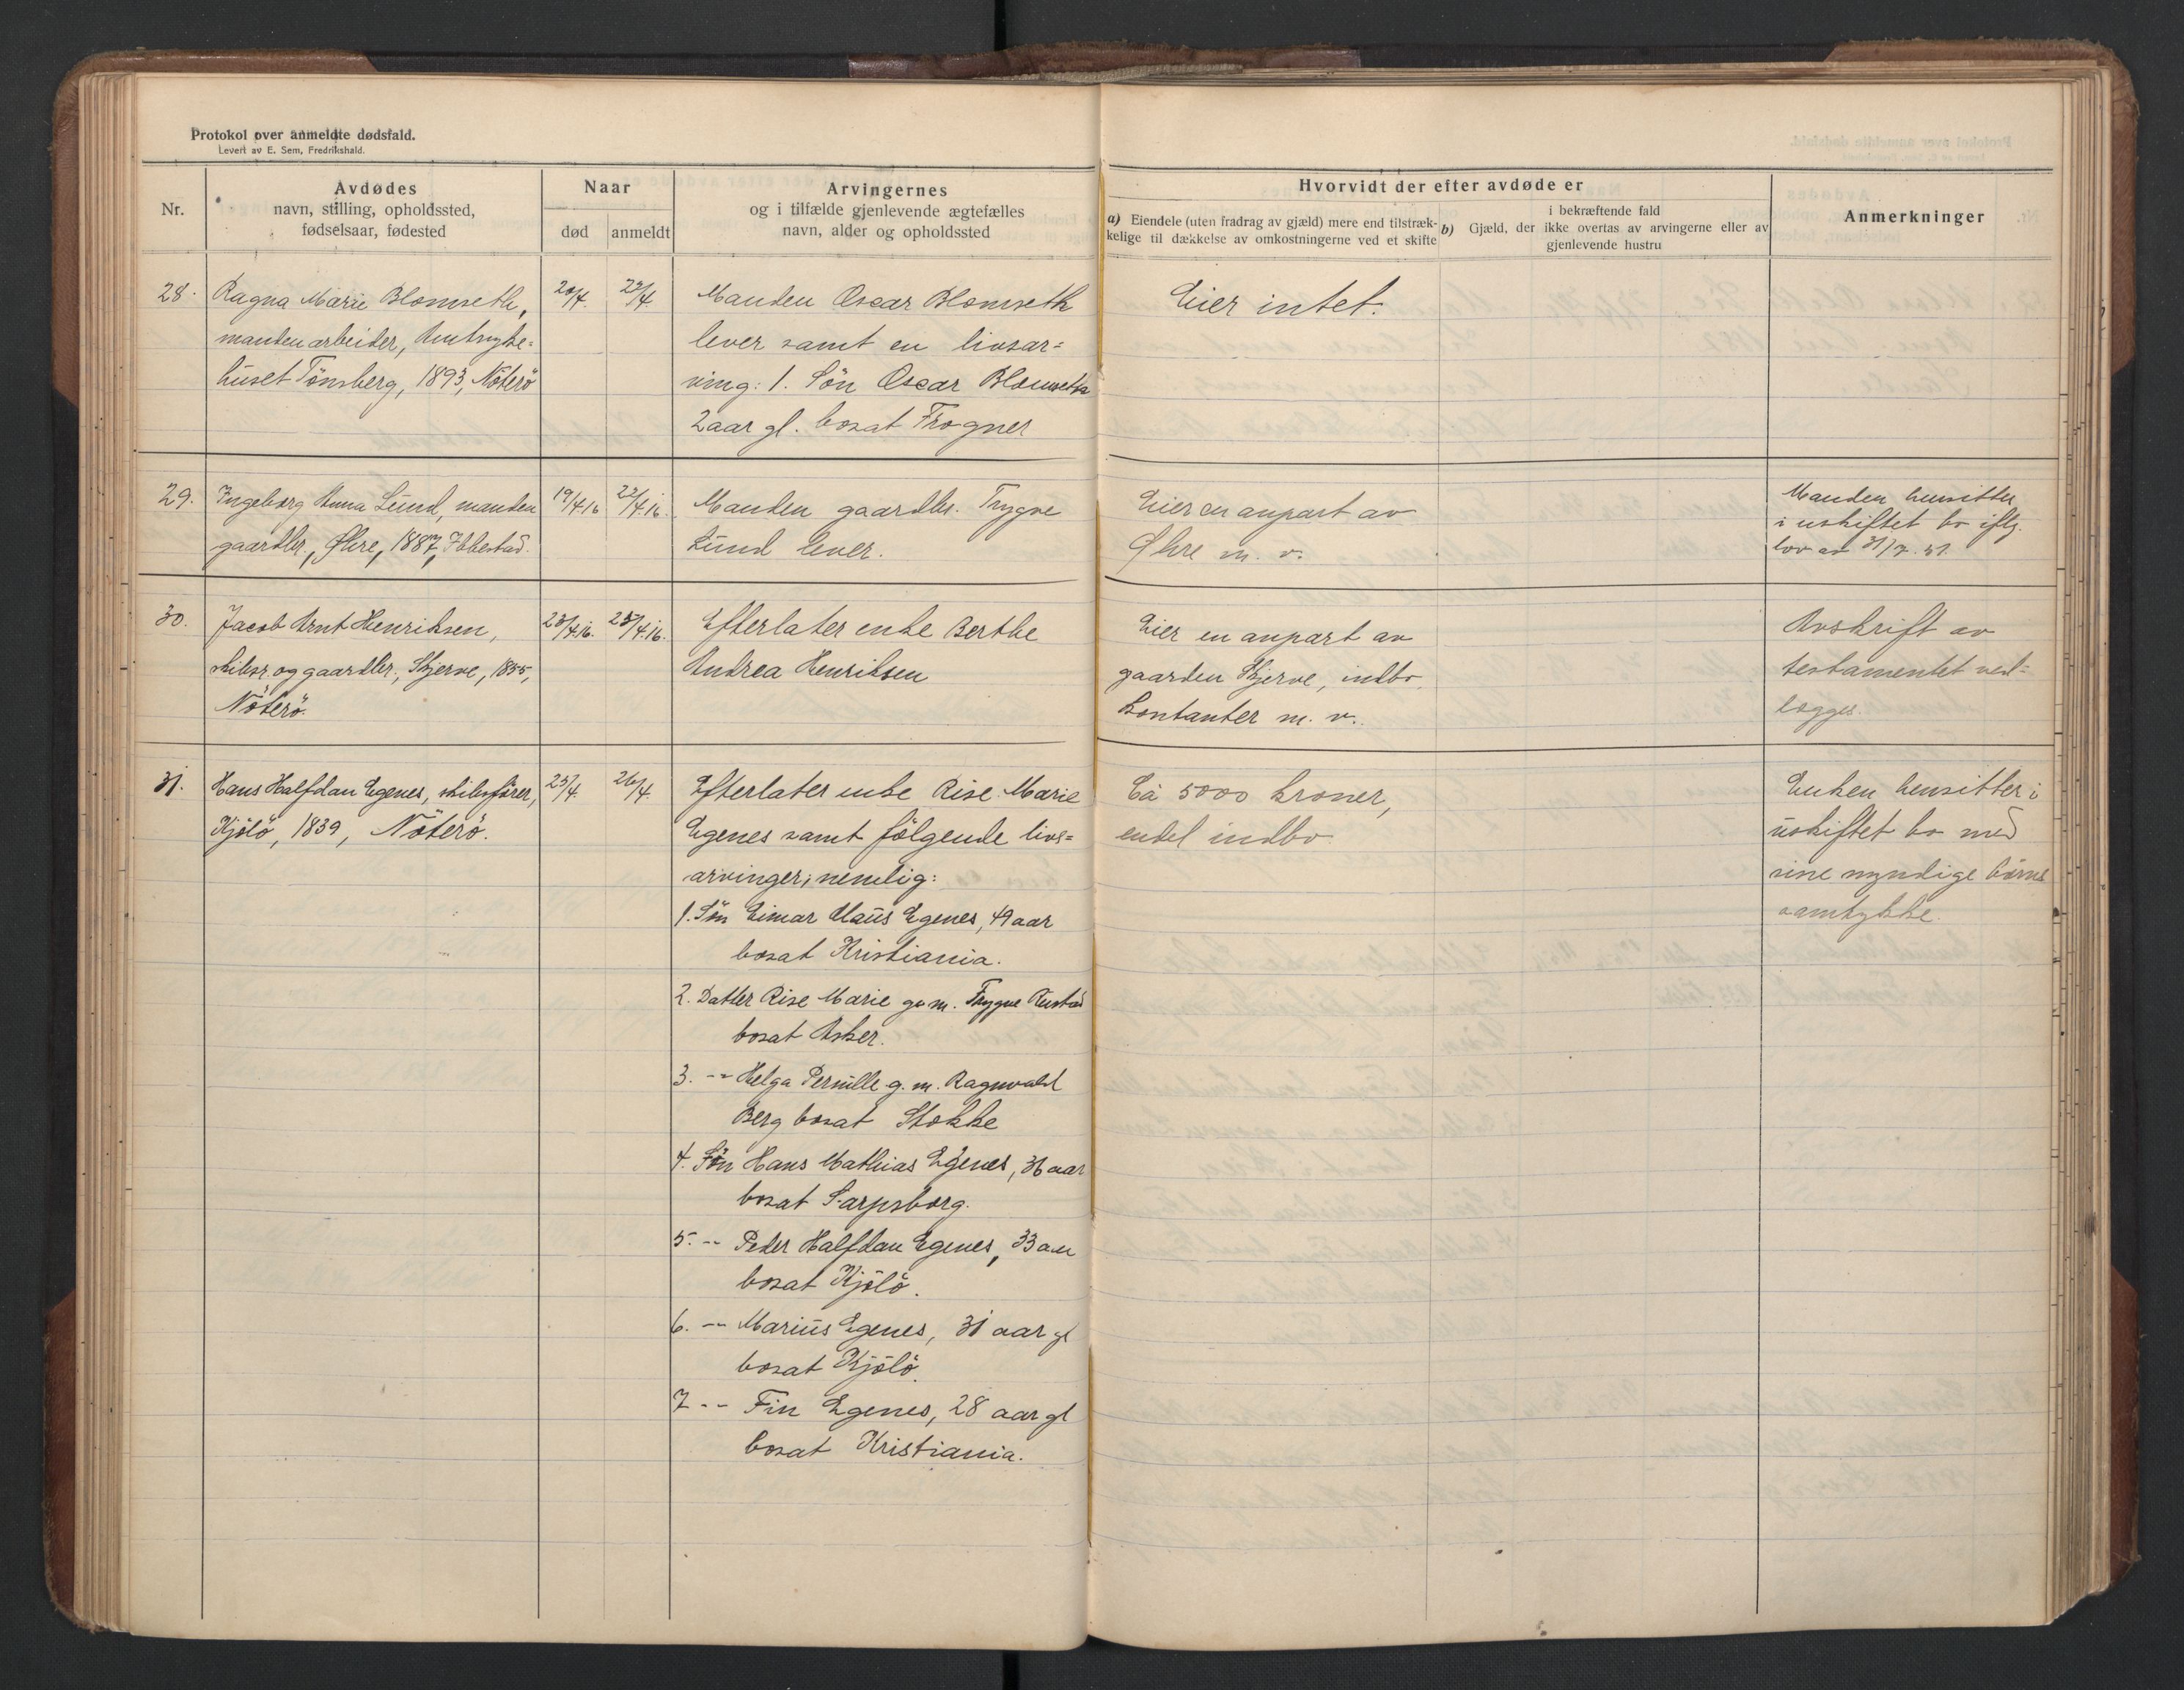 Protokol over anmeldte dødsfald.
Levert av E. Sem, Fredrikshald.
Nr.
Avdødes
navn, stilling, opholdssted,
fødselsaar, fødested
Naar
død anmeldt
Arvingernes
og i tilfælde gjenlevende ægtefælles
navn, alder og opholdssted
Hvorvidt der efter avdøde er
a) Eiendele (uten fradrag av gjæld) mere end tilstræk-
kelige til dækkelse av omkostningerne ved et skifte
i bekræftende fald
b) Gjæld, der ikke overtas av arvingerne eller av
gjenlevende hustru
Anmerkninger
28. Ragna Marie Blomseth,
manden arbeider,
huset Tönsberg, 1893, Nöterö
20/4. 22/4.
Manden Oscar Blomseth
lever samt en livsar=
ving: 1. Sön Oscar Blomseth
2 aar gl. bosat Frogner
Eier intet.
29. Ingeborg Anna Lund, manden
gaardbr., Øhre, 1887, Ibbestad.
19/4.16 22/4.16.
Manden gaardbr. Trygve
Lund lever.
Eier en anpart av
Øhre m. v.
Manden hensitter
i uskiftet bo iflg.
lov av 31/7. 51.
30. Jacob Arnt Henriksen,
skibsr. og gaardbr., Skjerve, 1855,
Nöterö.
23/4.16. 25/4.16.
Efterlater enke Berthe
Andrea Henriksen
Eier en anpart av
gaarden Skjerve, indbo,
kontanter m. v.
Avskrift av
testamentet ved=
lægges.
31. Hans Halfdan Egenes, skibsfører,
Kjölö, 1839, Nöterö.
25/4. 26/4.
Efterlater enke Rise Marie
Egenes samt følgende livs=
arvinger; nemlig:
1. Sön Eimar Claus Egenes, 49 aar
bosat Kristiania.
2. Datter Rise Marie g. m. Trygve Rustad
bosat Asker.
3. -"- Helga Pernille g. m. Ragnvald
Berg bosat Stokke
4. Sön Hans Mathias Egenes, 36 aar
bosat Sarpsborg.
5. -"- Peder Halfdan Egenes, 33 aar
bosat Kjölö.
6. -"- Marius Egenes, 31 aar gl
bosat Kjölö.
7 -"- Fin Egenes, 28 aar gl
bosat Kristiania.
Ca 5000 kroner,
endel indbo
Enken hensitter i
uskiftet bo med
sine myndige börns
samtykke.